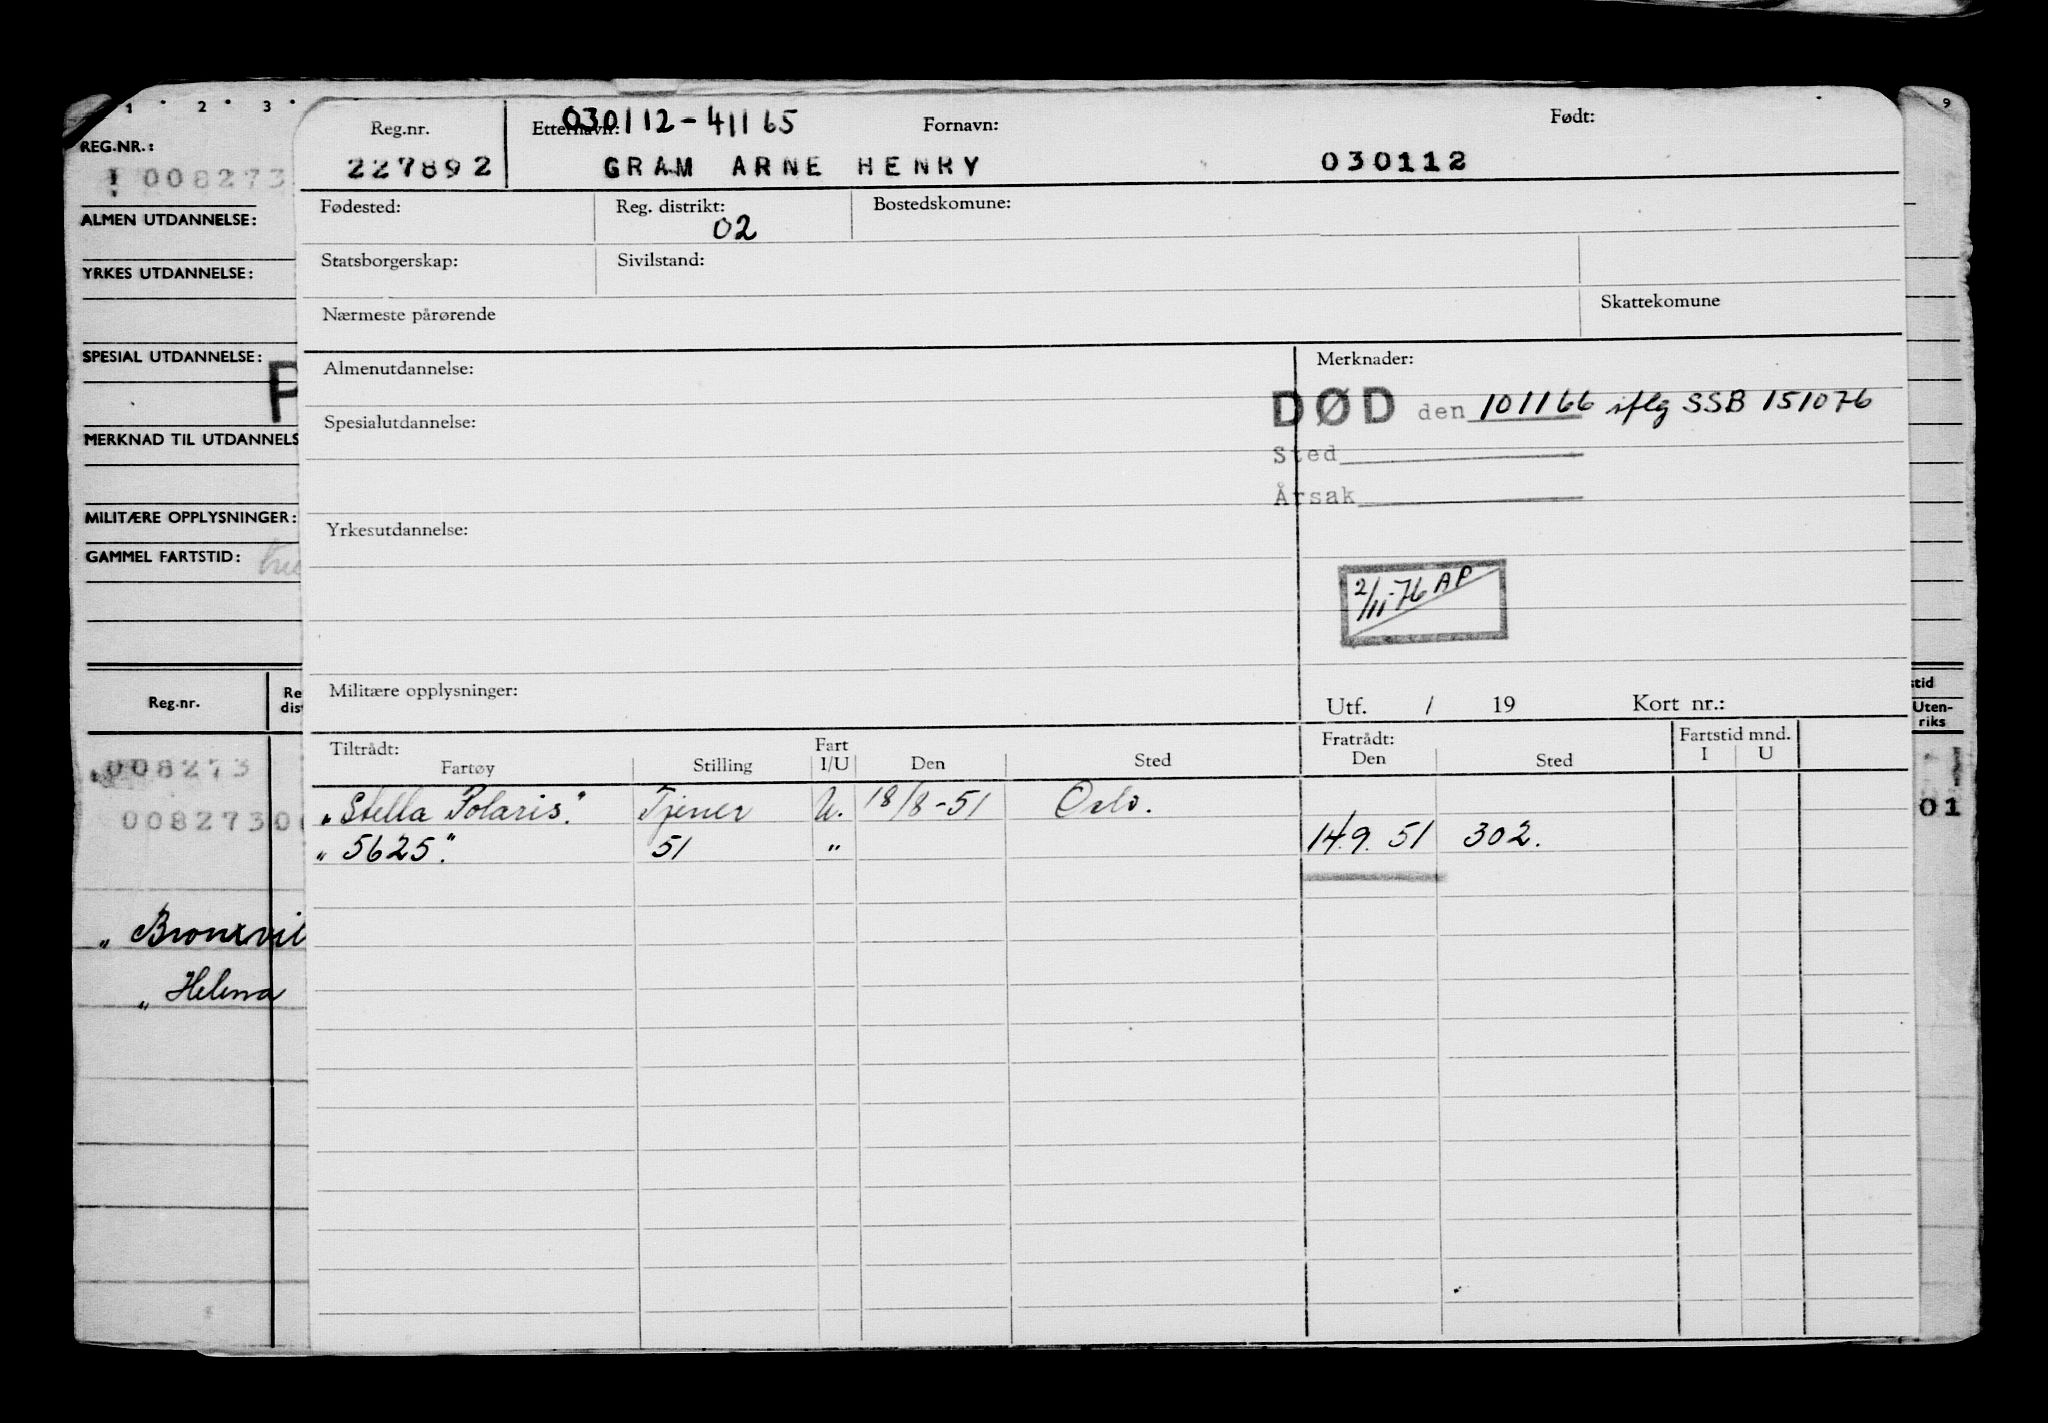 1 · 2 · 3 ·
9
REG.NR.:
! 008273
ALMEN UTDANNELSE:
YRKES UTDANNELSE:
SPESIAL UTDANNELSE:
P
MERKNAD TIL UTDANNELS
MILITÆRE OPPLYSNINGER:
GAMMEL FARTSTID:
Reg.nr. Re dist
008273
0082730
„ Bronxvil
„ Helena
Reg.nr. Etternavn: 030112-41165 Fornavn: Født:
227892 GRAM ARNE HENRY 030112
Fødested: Reg. distrikt: 02 Bostedskomune:
Statsborgerskap: Sivilstand:
Nærmeste pårørende Skattekomune
Almenutdannelse: Merknader:
DØD den 101166 iflg SSB 151076
Spesialutdannelse:
Sted
Årsak
Yrkesutdannelse:
2/11-76 AP
Militære opplysninger: Utf. / 19 Kort nr.:
Tiltrådt: Fart Fratrådt: Fartstid mnd.
Fartøy Stilling I/U Den Sted Den Sted I U
„Stella Polaris." Tjener U. 18/8-51 Oslo.
„ 5625." 51 " 14.9. 51 302.
tid
Uten-
riks
01